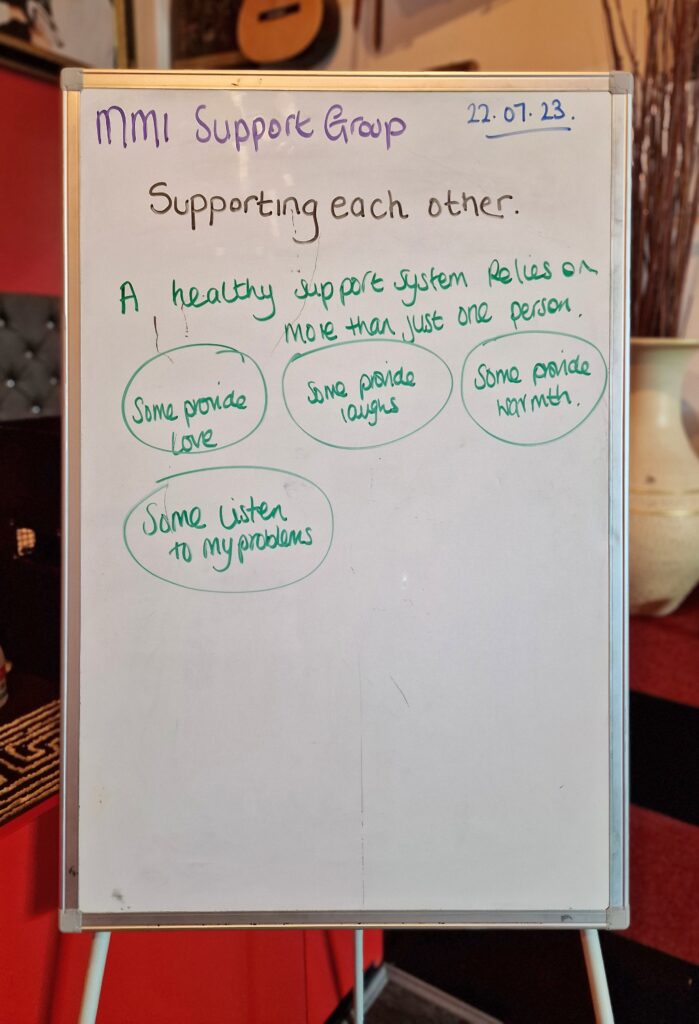 MMI Support Group
22.07.23.
Supporting each other.
A healthy support system Relies on
more than just one person.
Some provide
love
Some provide
laughs
Some provide
warmth.
Some Listen
to my problems